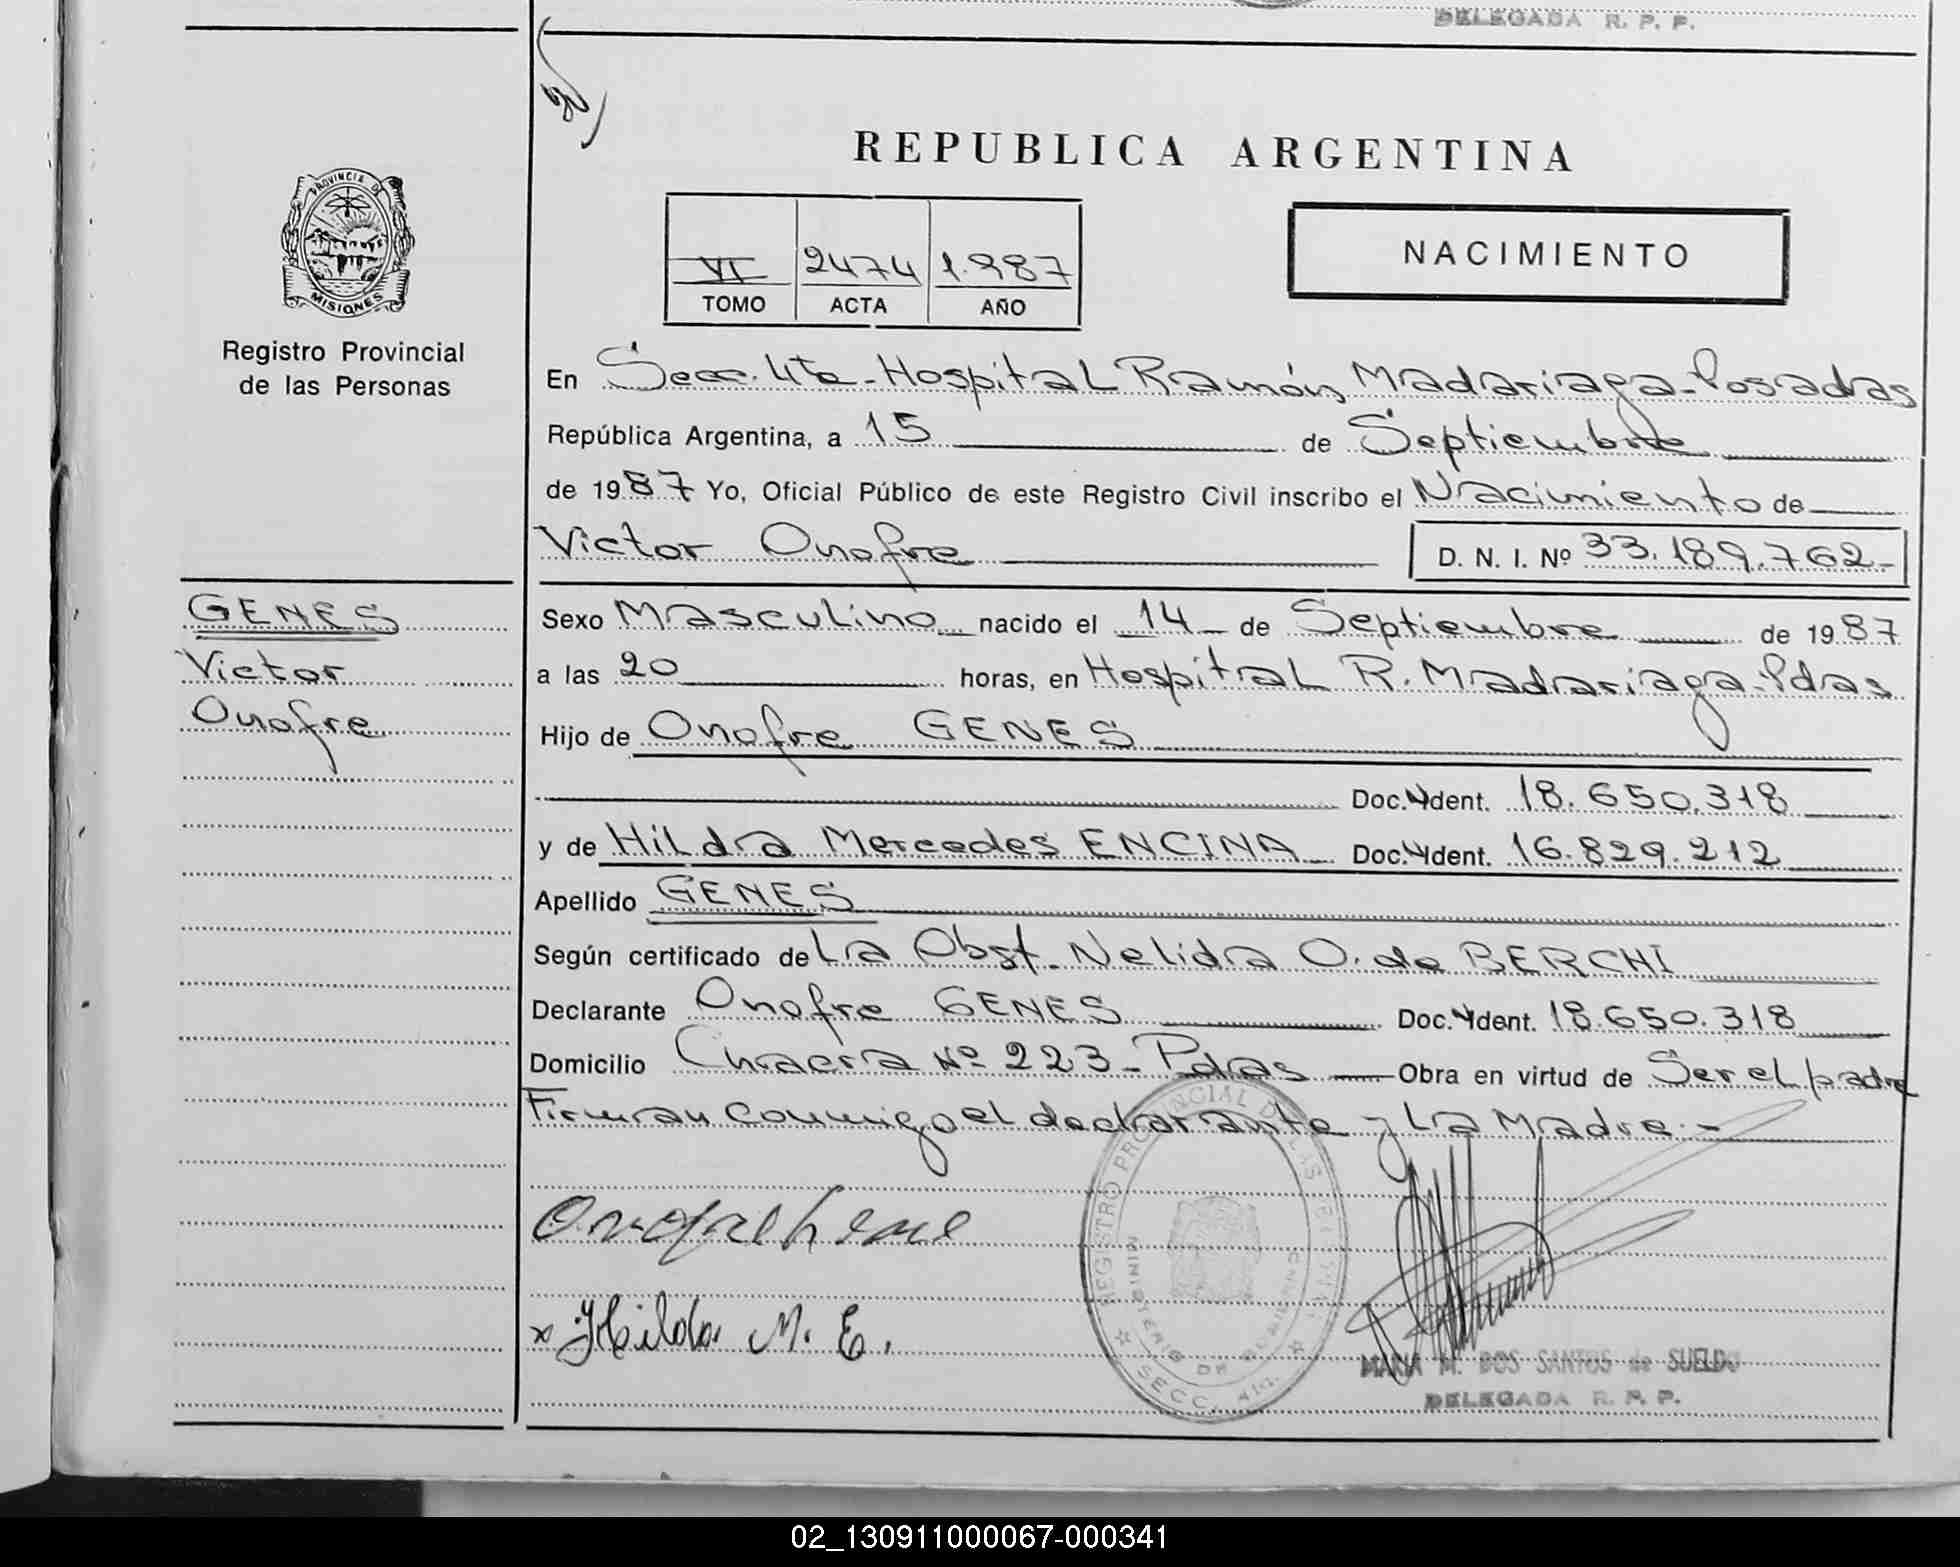 DELEGADA R. P. P.
REPUBLICA ARGENTINA
PROVINCIA DE
MISIONES
Registro Provincial
de las Personas
VI 2474 1.987
TOMO ACTA AÑO
NACIMIENTO
En Secc. 4ta - Hospital Ramón Madariaga - Posadas
República Argentina, a 15 de Septiembre
de 1987 Yo, Oficial Público de este Registro Civil inscribo el Nacimiento de
Victor Onofre D. N. I. Nº 33.189.762-
GENES
Victor
Onofre
Sexo Masculino nacido el 14 de Septiembre de 1987
a las 20 horas, en Hospital R. Madariaga - Pdas
Hijo de Onofre GENES
Doc. Ydent. 18.650.318
y de Hilda Mercedes ENCINA Doc. Ydent. 16.829.212
Apellido GENES
Según certificado de La Obst. Nelida O. de BERCHI
Declarante Onofre GENES Doc. Ydent. 18.650.318
Domicilio Chacra Nº 223 - Pdas Obra en virtud de Ser el padre
Firman conmigo el declarante y La Madre.-
Hilda M. E.
REGISTRO PROVINCIAL DE LAS PERSONAS
MINISTERIO DE GOBIERNO
SECC. 4ta.
MARIA M. DOS SANTOS de SUELDO
DELEGADA R. P. P.
02_130911000067-000341